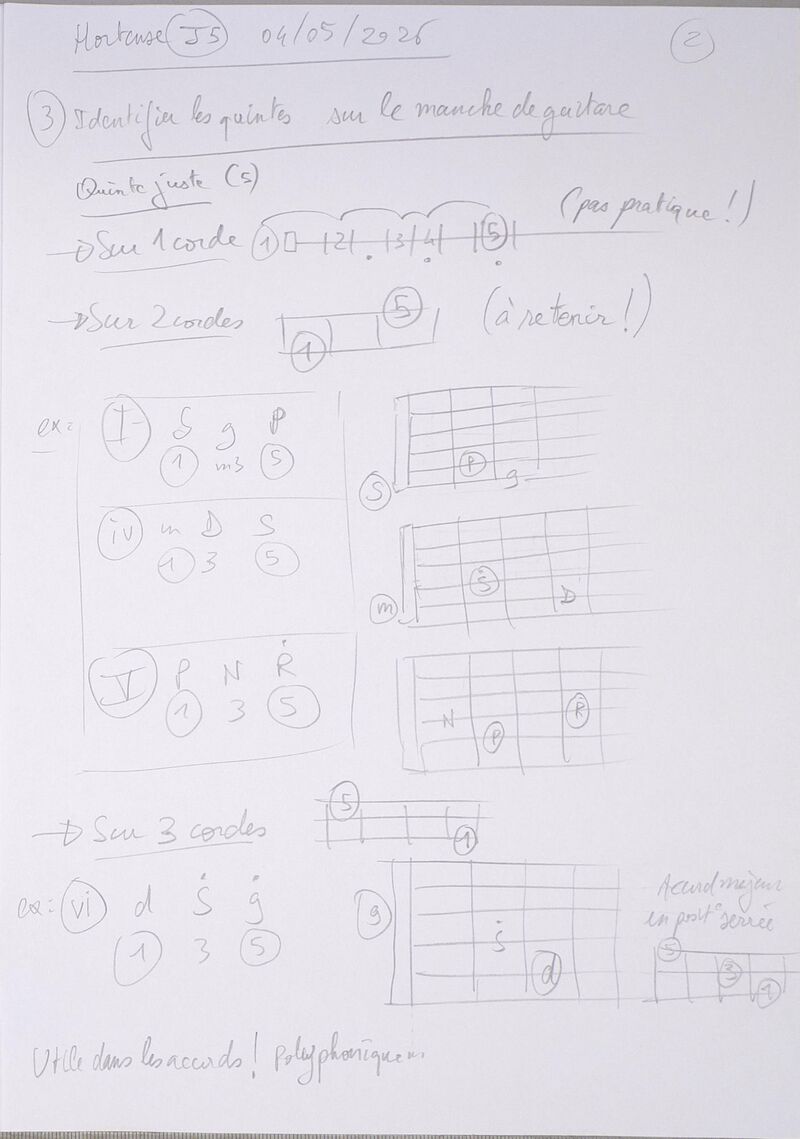 Hortense J5 04/05/2026 2
3 Identifier les quintes sur le manche de guitare
Quinte juste (5)
→ Sur 1 corde 1 2 3 4 5 (pas pratique !)
→ Sur 2 cordes 1 5 (à retenir !)
ex: I S g P
1 m3 5
P
S g
iv m D S
1 3 5
S
m D
V P N R
1 3 5
N P R
→ Sur 3 cordes 5 1
ex: vi d S g
1 3 5
g S d
Accord majeur
en posit° serrée
5 3 1
Utile dans les accords ! Polyphoniques